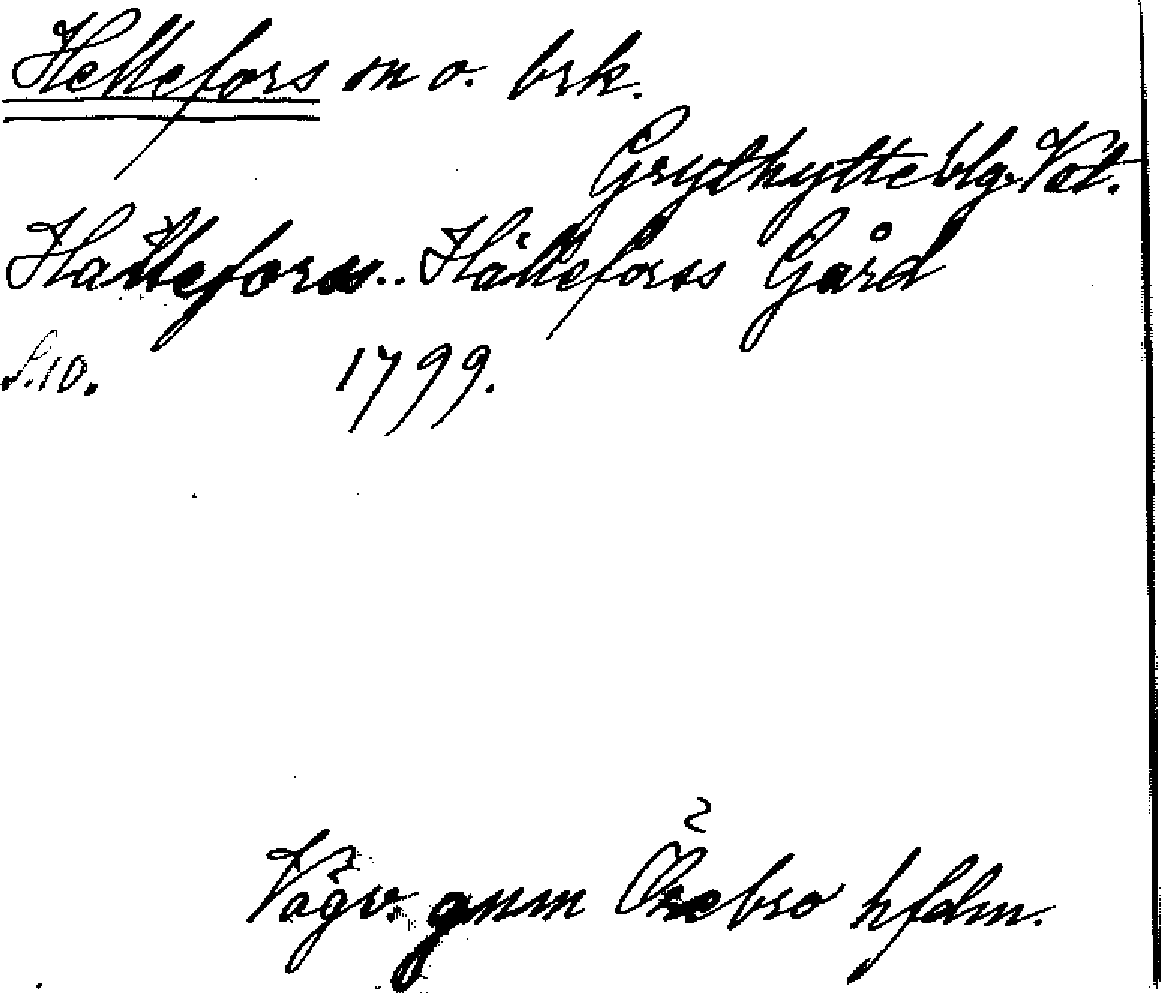 Hellefors sn o. brk.
Grythytte blg. Vstm.
Hällefors.. Hällefors Gård
S.10. 1799.
Vägv. gnm Örebro hfdm.